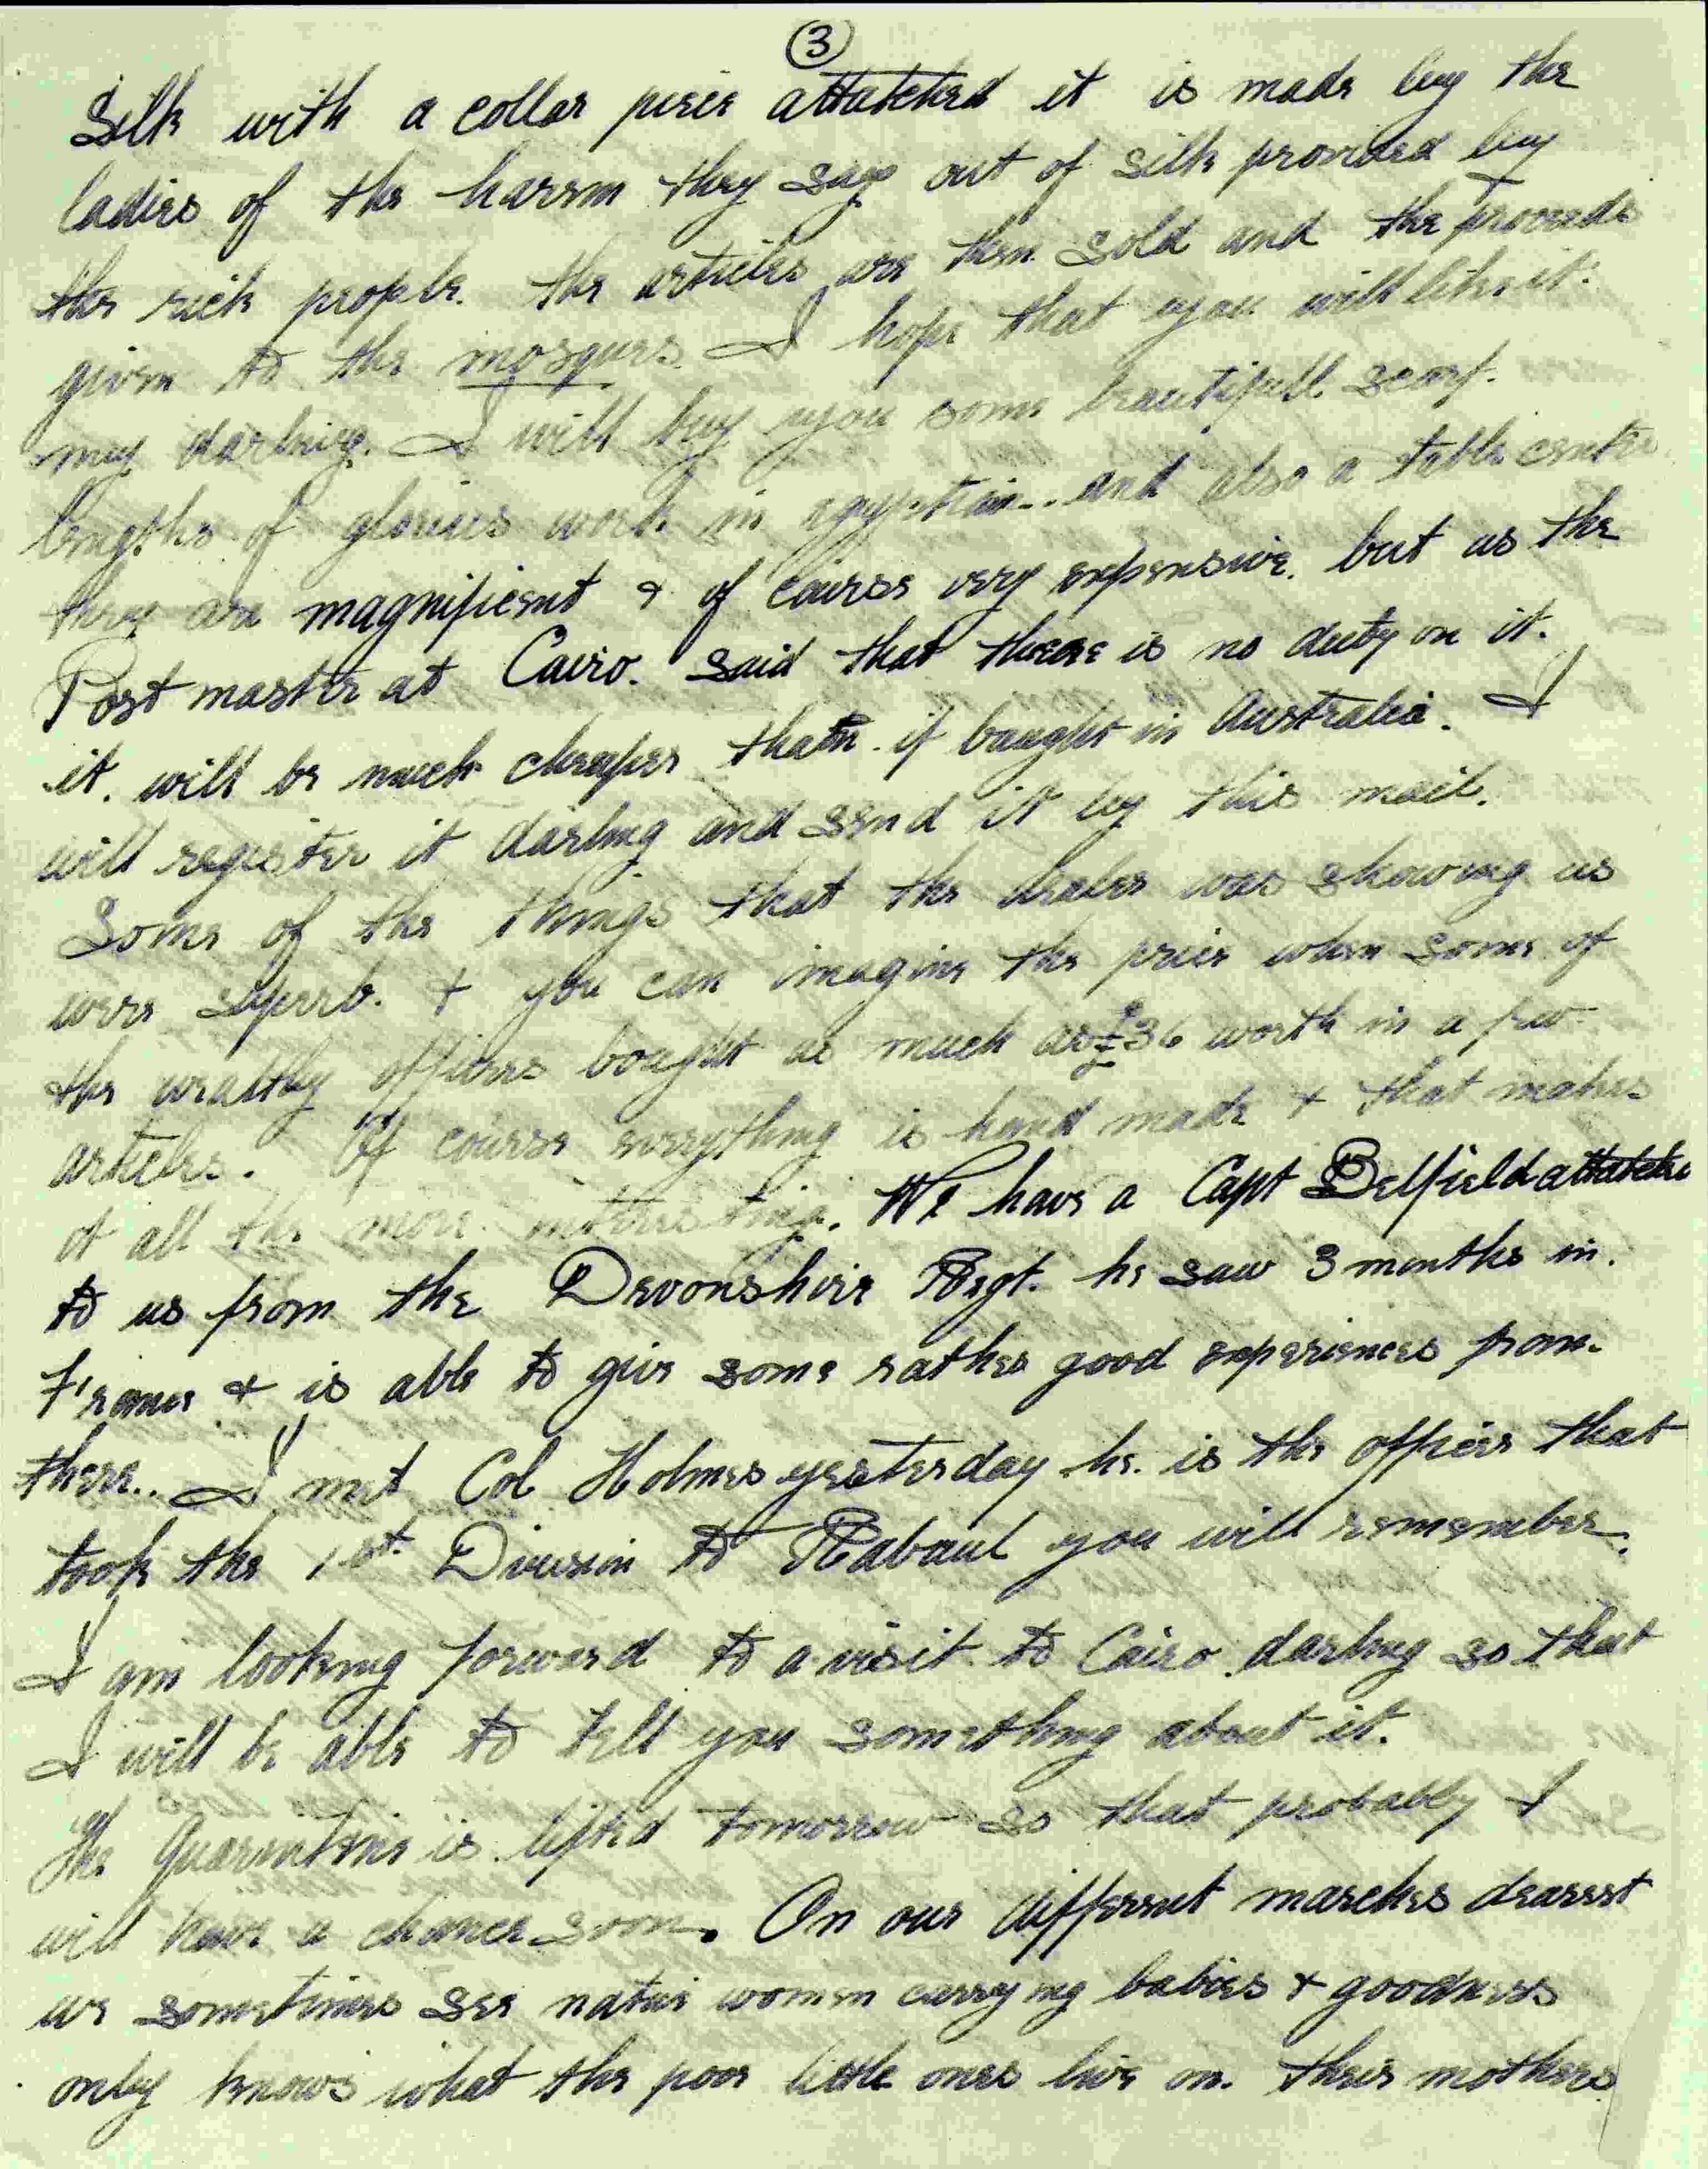 3
Silk with a collar piece attatched it is made by the
ladies of the harem they say out of silk provided by
the rich people. the articles are then sold and the proceeds
given to the mosques. I hope that you will like it.
my darling. I will buy you some beautifull scarf.
lengths of glorious work in egyptian.. and also a table centre
they are magnificent & of course very expensive. but as the
Post master at Cairo. said that there is no duty on it.
it. will be much cheaper than if bought in Australia. I
will register it darling and send it by this mail.
Some of the things that the dealer was showing us
were superb. & you can imagine the price when some of
the wealthy officers bought as much as £36 worth in a few
articles. Of course everything is hand made & that makes
it all the more interesting. We have a Capt Belfield attatched
to us from the Devonshire Regt. he saw 3 months in.
France & is able to give some rather good experiences from.
there.. I met Col Holmes yesterday he. is the officer that
took the 1st Division to Rabaul you will remember.
I am looking forward to a visit to Cairo darling so that
I will be able to tell you something about it.
The Quarintine is lifted tomorrow so that probably I
will have a chance soon. On our different marches dearest
we sometimes see native women carrying babies & goodness
only knows what the poor little ones live on. their mothers